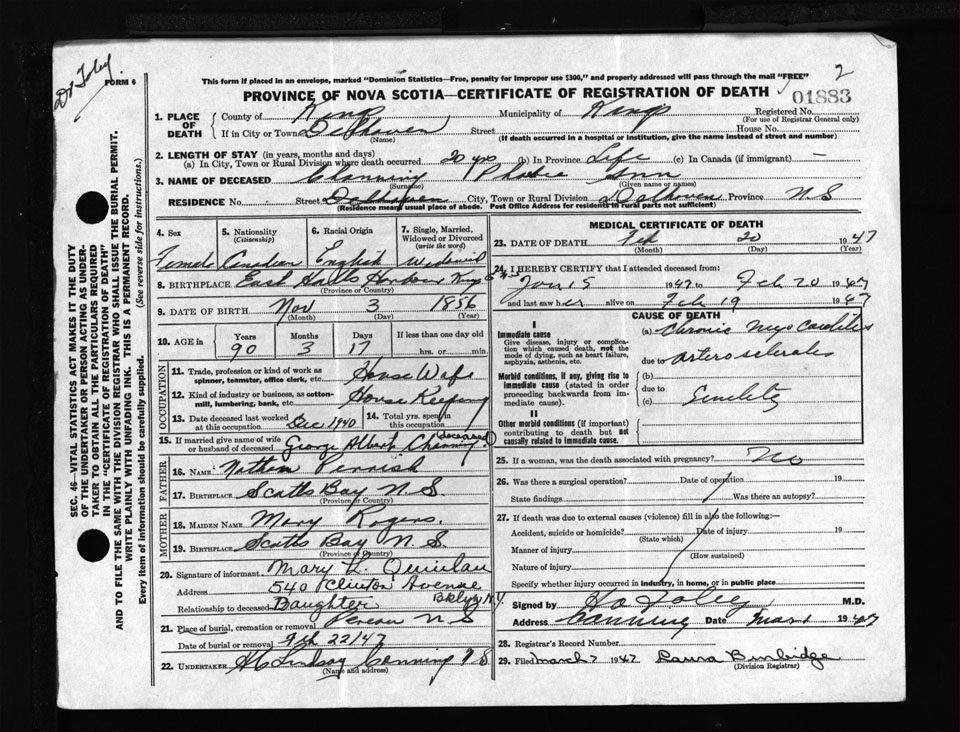 Dr Foley.
FORM 6
2
This form if placed in an envelope, marked "Dominion Statistics—Free, penalty for improper use $300," and properly addressed will pass through the mail "FREE"
PROVINCE OF NOVA SCOTIA—CERTIFICATE OF REGISTRATION OF DEATH
01883
1. PLACE OF DEATH
County of Kings Municipality of Kings Registered No.
(For use of Registrar General only)
If in City or Town Delhaven Street House No.
(Name) (If death occurred in a hospital or institution, give the name instead of street and number)
2. LENGTH OF STAY (in years, months and days)
(a) In City, Town or Rural Division where death occurred 20 yrs (b) In Province Life (c) In Canada (if immigrant) —
3. NAME OF DECEASED Channing Phoebe Ann
(Surname) (Given name or names)
RESIDENCE No. Street Delhaven City, Town or Rural Division Delhaven Province N.S
(Residence means usual place of abode. Post Office Address for residents in rural parts not sufficient)
4. Sex 5. Nationality (Citizenship) 6. Racial Origin 7. Single, Married, Widowed or Divorced (write the word)
Female Canadian English Widowed
8. BIRTHPLACE East Halls Harbour Kings
(Province or Country)
9. DATE OF BIRTH Nov 3 1856
(Month) (Day) (Year)
10. AGE in Years Months Days If less than one day old
90 3 17 hrs. or min.
OCCUPATION
11. Trade, profession or kind of work as spinner, teamster, office clerk, etc. House Wife
12. Kind of industry or business, as cotton-mill, lumbering, bank, etc. House Keeping
13. Date deceased last worked at this occupation Dec 1940 14. Total yrs. spent in this occupation
15. If married give name of wife or husband of deceased George Albert Channing (deceased)
FATHER
16. NAME Nathan Perrish
17. BIRTHPLACE Scotts Bay N.S.
(Province or Country)
MOTHER
18. MAIDEN NAME Mary Rogers.
19. BIRTHPLACE Scotts Bay N.S.
(Province or Country)
20. Signature of informant Mary L. Quinlan
Address 540 Clinton Avenue
Bklyn N.Y.
Relationship to deceased Daughter
21. Place of burial, cremation or removal Pereau N S
Date of burial or removal Feb 22/47
22. UNDERTAKER Lindsay Canning N S
(Name and address)
MEDICAL CERTIFICATE OF DEATH
23. DATE OF DEATH Feb 20 1947
(Month) (Day) (Year)
24. I HEREBY CERTIFY that I attended deceased from:
Jan 15 1947 to Feb 20 1947
and last saw her alive on Feb 19 1947
CAUSE OF DEATH
I
Immediate cause
Give disease, injury or complication which caused death, not the mode of dying, such as heart failure, asphyxia, asthenia, etc.
(a) Chronic Myocarditis
due to arterosclerosis
Morbid conditions, if any, giving rise to immediate cause (stated in order proceeding backwards from immediate cause).
(b)
due to
(c) Senility
II
Other morbid conditions (if important) contributing to death but not causally related to immediate cause.
25. If a woman, was the death associated with pregnancy? No
26. Was there a surgical operation? Date of operation 19
State findings Was there an autopsy?
27. If death was due to external causes (violence) fill in also the following:—
Accident, suicide or homicide? Date of injury 19
(State which)
Manner of injury
(How sustained)
Nature of injury
Specify whether injury occurred in industry, in home, or in public place
Signed by Foley M.D.
Address Canning Date Mar 1 1947
28. Registrar's Record Number
29. Filed March 7 1947 Laura Burbidge
(Division Registrar)
SEC. 46—VITAL STATISTICS ACT MAKES IT THE DUTY
OF THE UNDERTAKER OR PERSON ACTING AS UNDER-
TAKER TO OBTAIN ALL THE PARTICULARS REQUIRED
IN THE "CERTIFICATE OF REGISTRATION OF DEATH"
AND TO FILE THE SAME WITH THE DIVISION REGISTRAR WHO SHALL ISSUE THE BURIAL PERMIT.
WRITE PLAINLY WITH UNFADING INK. THIS IS A PERMANENT RECORD.
Every item of information should be carefully supplied. (See reverse side for instructions.)